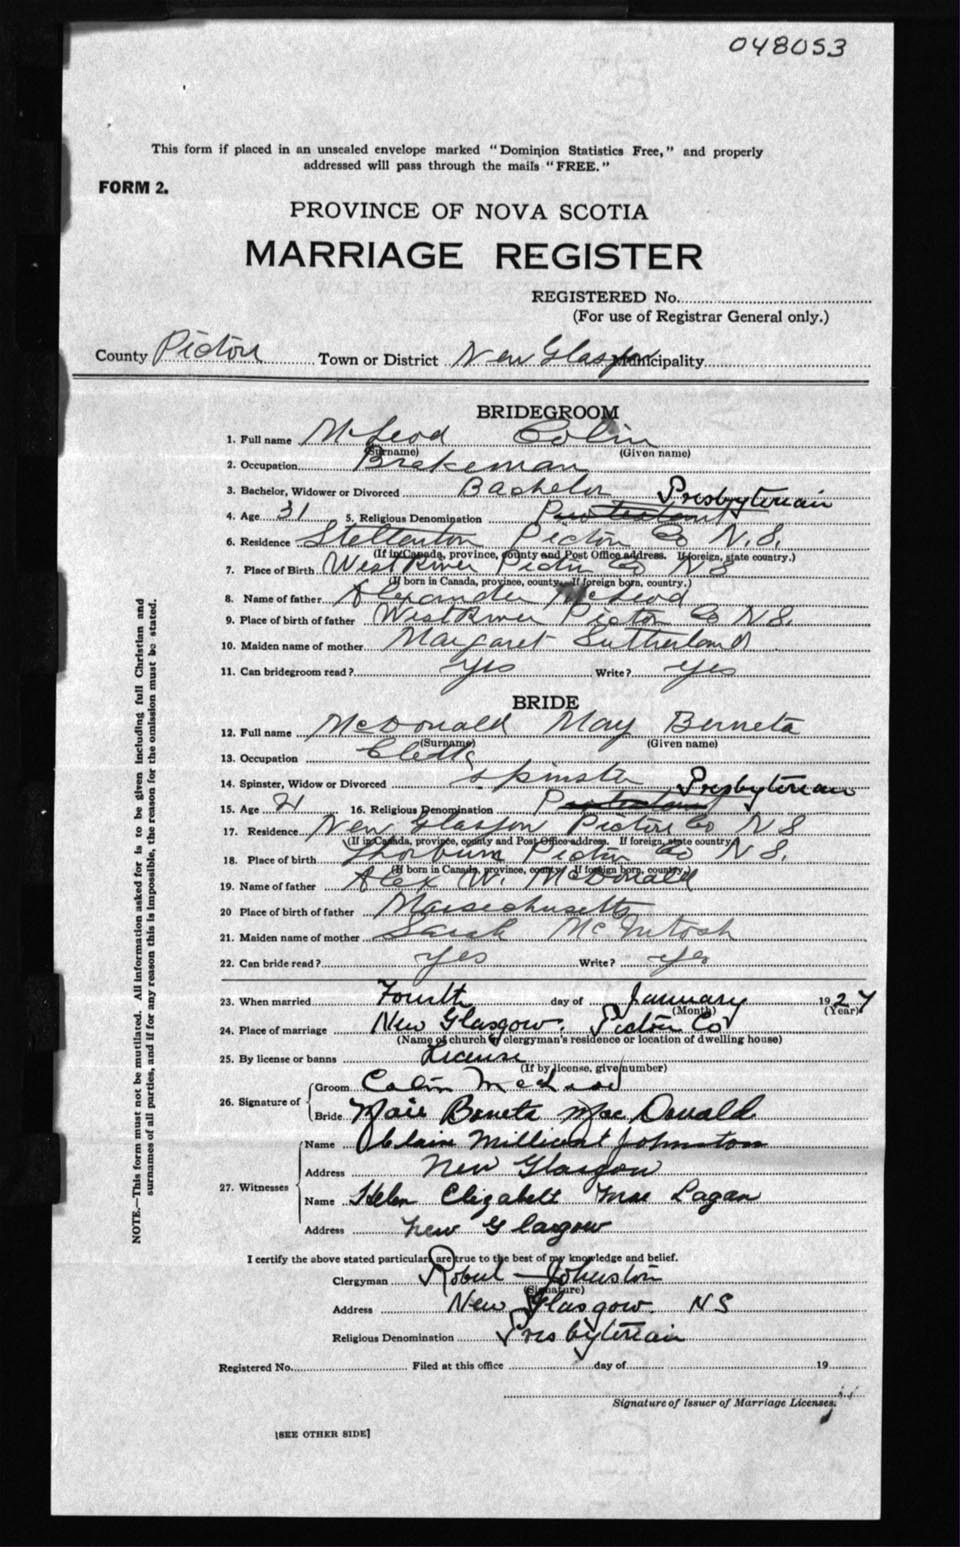 048053
This form if placed in an unsealed envelope marked "Dominion Statistics Free," and properly
addressed will pass through the mails "FREE."
FORM 2.
PROVINCE OF NOVA SCOTIA
MARRIAGE REGISTER
REGISTERED No.
(For use of Registrar General only.)
County Pictou Town or District New Glasgow Municipality
BRIDEGROOM
1. Full name McLeod Colin
(Surname) (Given name)
2. Occupation Brakeman
3. Bachelor, Widower or Divorced Bachelor Presbyterian
4. Age 31 5. Religious Denomination Protestant
6. Residence Stellarton Pictou Co N.S.
(If in Canada, province, county and Post Office address. If foreign, state country.)
7. Place of Birth West River Pictou Co N S
(If born in Canada, province, county. If foreign born, country.)
8. Name of father Alexander McLeod
9. Place of birth of father West River Pictou Co N.S.
10. Maiden name of mother Margaret Sutherland
11. Can bridegroom read? yes Write? yes
BRIDE
12. Full name McDonald May Berneta
(Surname) (Given name)
13. Occupation Clerk
14. Spinster, Widow or Divorced Spinster Presbyterian
15. Age 21 16. Religious Denomination Protestant
17. Residence New Glasgow Pictou Co N S
(If in Canada, province, county and Post Office address. If foreign, state country.)
18. Place of birth Thorburn Pictou Co N S.
(If born in Canada, province, county. If foreign born, country.)
19. Name of father Alex W. McDonald
20 Place of birth of father Massachusetts
21. Maiden name of mother Sarah McIntosh
22. Can bride read? yes Write? yes
23. When married Fourth day of January 1927
(Month) (Year)
24. Place of marriage New Glasgow. Pictou Co
(Name of church or clergyman's residence or location of dwelling house)
25. By license or banns License
(If by license, give number)
26. Signature of Groom Colin McLeod
Bride Maie Berneta MacDonald
27. Witnesses Name Millicent Johnston
Address New Glasgow
Name Helen Elizabeth MacLagan
Address New Glasgow
I certify the above stated particulars are true to the best of my knowledge and belief.
Clergyman Robert Johnston
(Signature)
Address New Glasgow NS
Religious Denomination Presbyterian
Registered No. Filed at this office day of 19
Signature of Issuer of Marriage Licenses.
[SEE OTHER SIDE]
NOTE.—This form must not be mutilated. All information asked for is to be given including full Christian and
surnames of all parties, and if for any reason this is impossible, the reason for the omission must be stated.